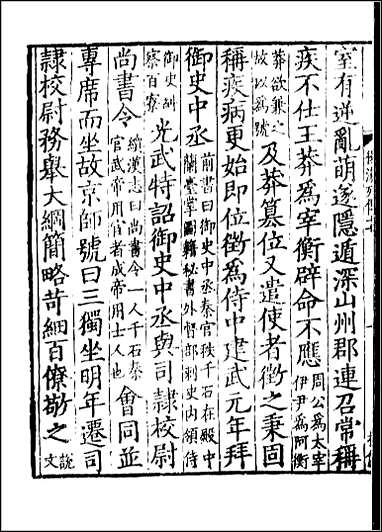 室有逆亂萌遂隱遁深山州郡連召常稱
疾不仕王莽爲宰衡辟命不應周公爲太宰伊尹爲阿衡
莽欲兼之故以爲號及莽篡位又遣使者徵之秉固
稱疾病更始即位徵爲侍中建武元年拜
御史中丞前書曰御史中丞秦官秩千石在殿中蘭臺掌圖籍秘書外督部刺史内領侍
御史糾察百寮光武特詔御史中丞與司隷校尉
尚書令續漢志曰尚書令一人千石秦官武帝用宦者成帝用士人也會同並
專席而坐故京師號曰三獨坐明年遷司
隷校尉務舉大綱簡略苛細百僚敬之說文